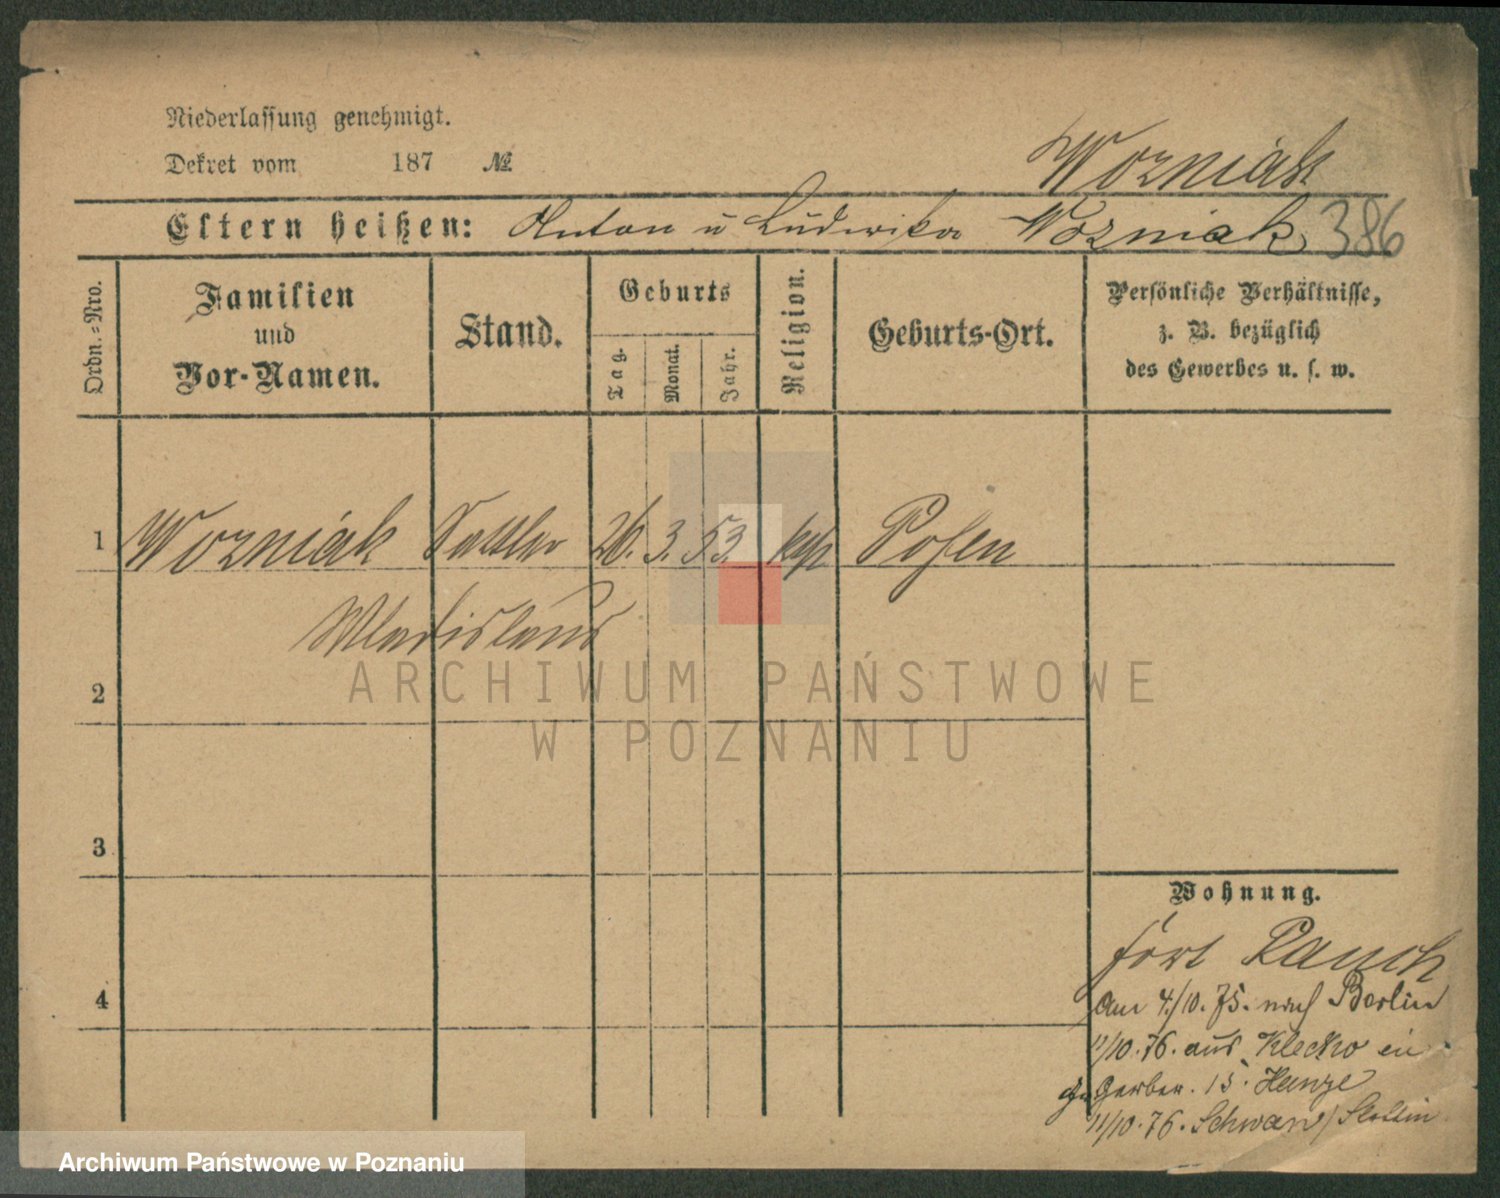 Niederlassung genehmigt.
Dekret vom 187 №
Wozniak
Eltern heißen: Anton u Ludwika Wozniak 386
Ordn.-Nro.
Familien und Vor-Namen.
Stand.
Geburts
Tag.
Monat.
Jahr.
Religion.
Geburts-Ort.
Persönliche Verhältnisse,
z. B. bezüglich
des Gewerbes u. s. w.
1 Wozniak Sattler 26. 3. 53. kath Posen
Wladislaus
2
3
4
Wohnung.
fort Rauch
am 4/10. 75. nach Berlin
11/10. 76. aus Klecko ein
Gerber. 15.
11/10. 76.
ARCHIWUM PAŃSTWOWE
W POZNANIU
Archiwum Państwowe w Poznaniu